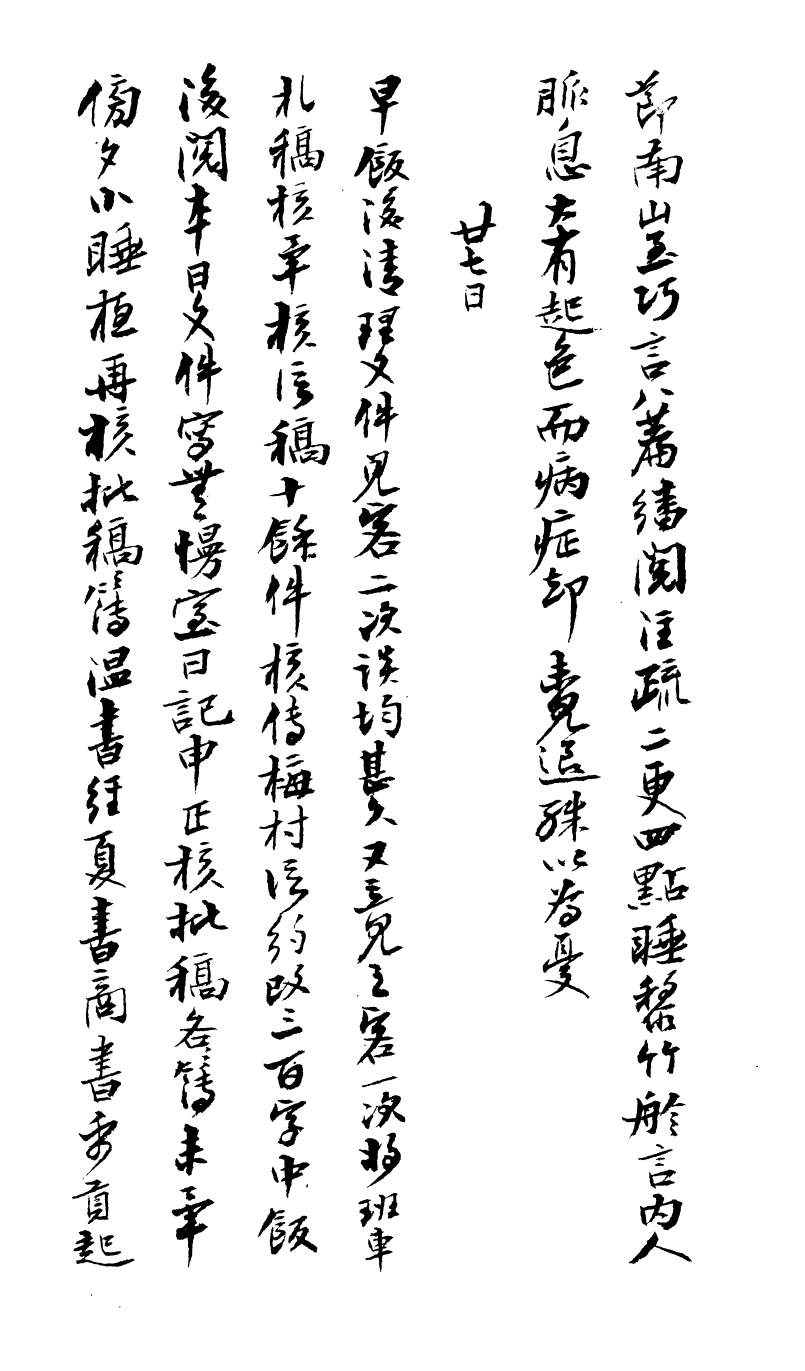 節南山至巧言八篇繙閱注疏二更四點睡黎竹舲言內人
脈息大有起色而病症却覺退殊以為憂
廿七日
早飯後清理文件見客二次談均甚久又立見之客一次將班車
札稿核畢核信稿十餘件核傅梅村信約改三百字中飯
後閱本日文件寫無慢室日記申正核批稿各簿未畢
傍夕小睡夜再核批稿簿溫書經夏書商書禹貢起